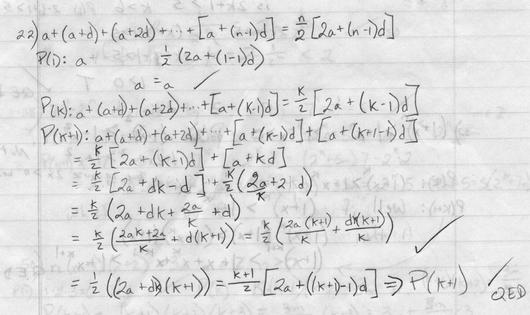 22) a+(a+d)+(a+2d)+...+[a+(n-1)d] = n/2 [2a+(n-1)d]
P(1): a 1/2 (2a+(1-1)d)
a = a ✓
P(k): a+(a+d)+(a+2d)+...+[a+(k-1)d] = k/2 [2a+(k-1)d]
P(k+1): a+(a+d)+(a+2d)+...+[a+(k-1)d]+[a+(k+1-1)d]
= k/2 [2a+(k-1)d] + [a+kd]
= k/2 [2a+dk-d] + k/2 (2a/k+2d)
= k/2 (2a+dk+2a/k+d)
= k/2 (2ak+2a/k + d(k+1)) = k/2 (2a(k+1)/k + dk(k+1)/k) ✓
= 1/2 ((2a+dk)(k+1)) = k+1/2 [2a+((k+1)-1)d] ⇒ P(k+1) ✓
QED